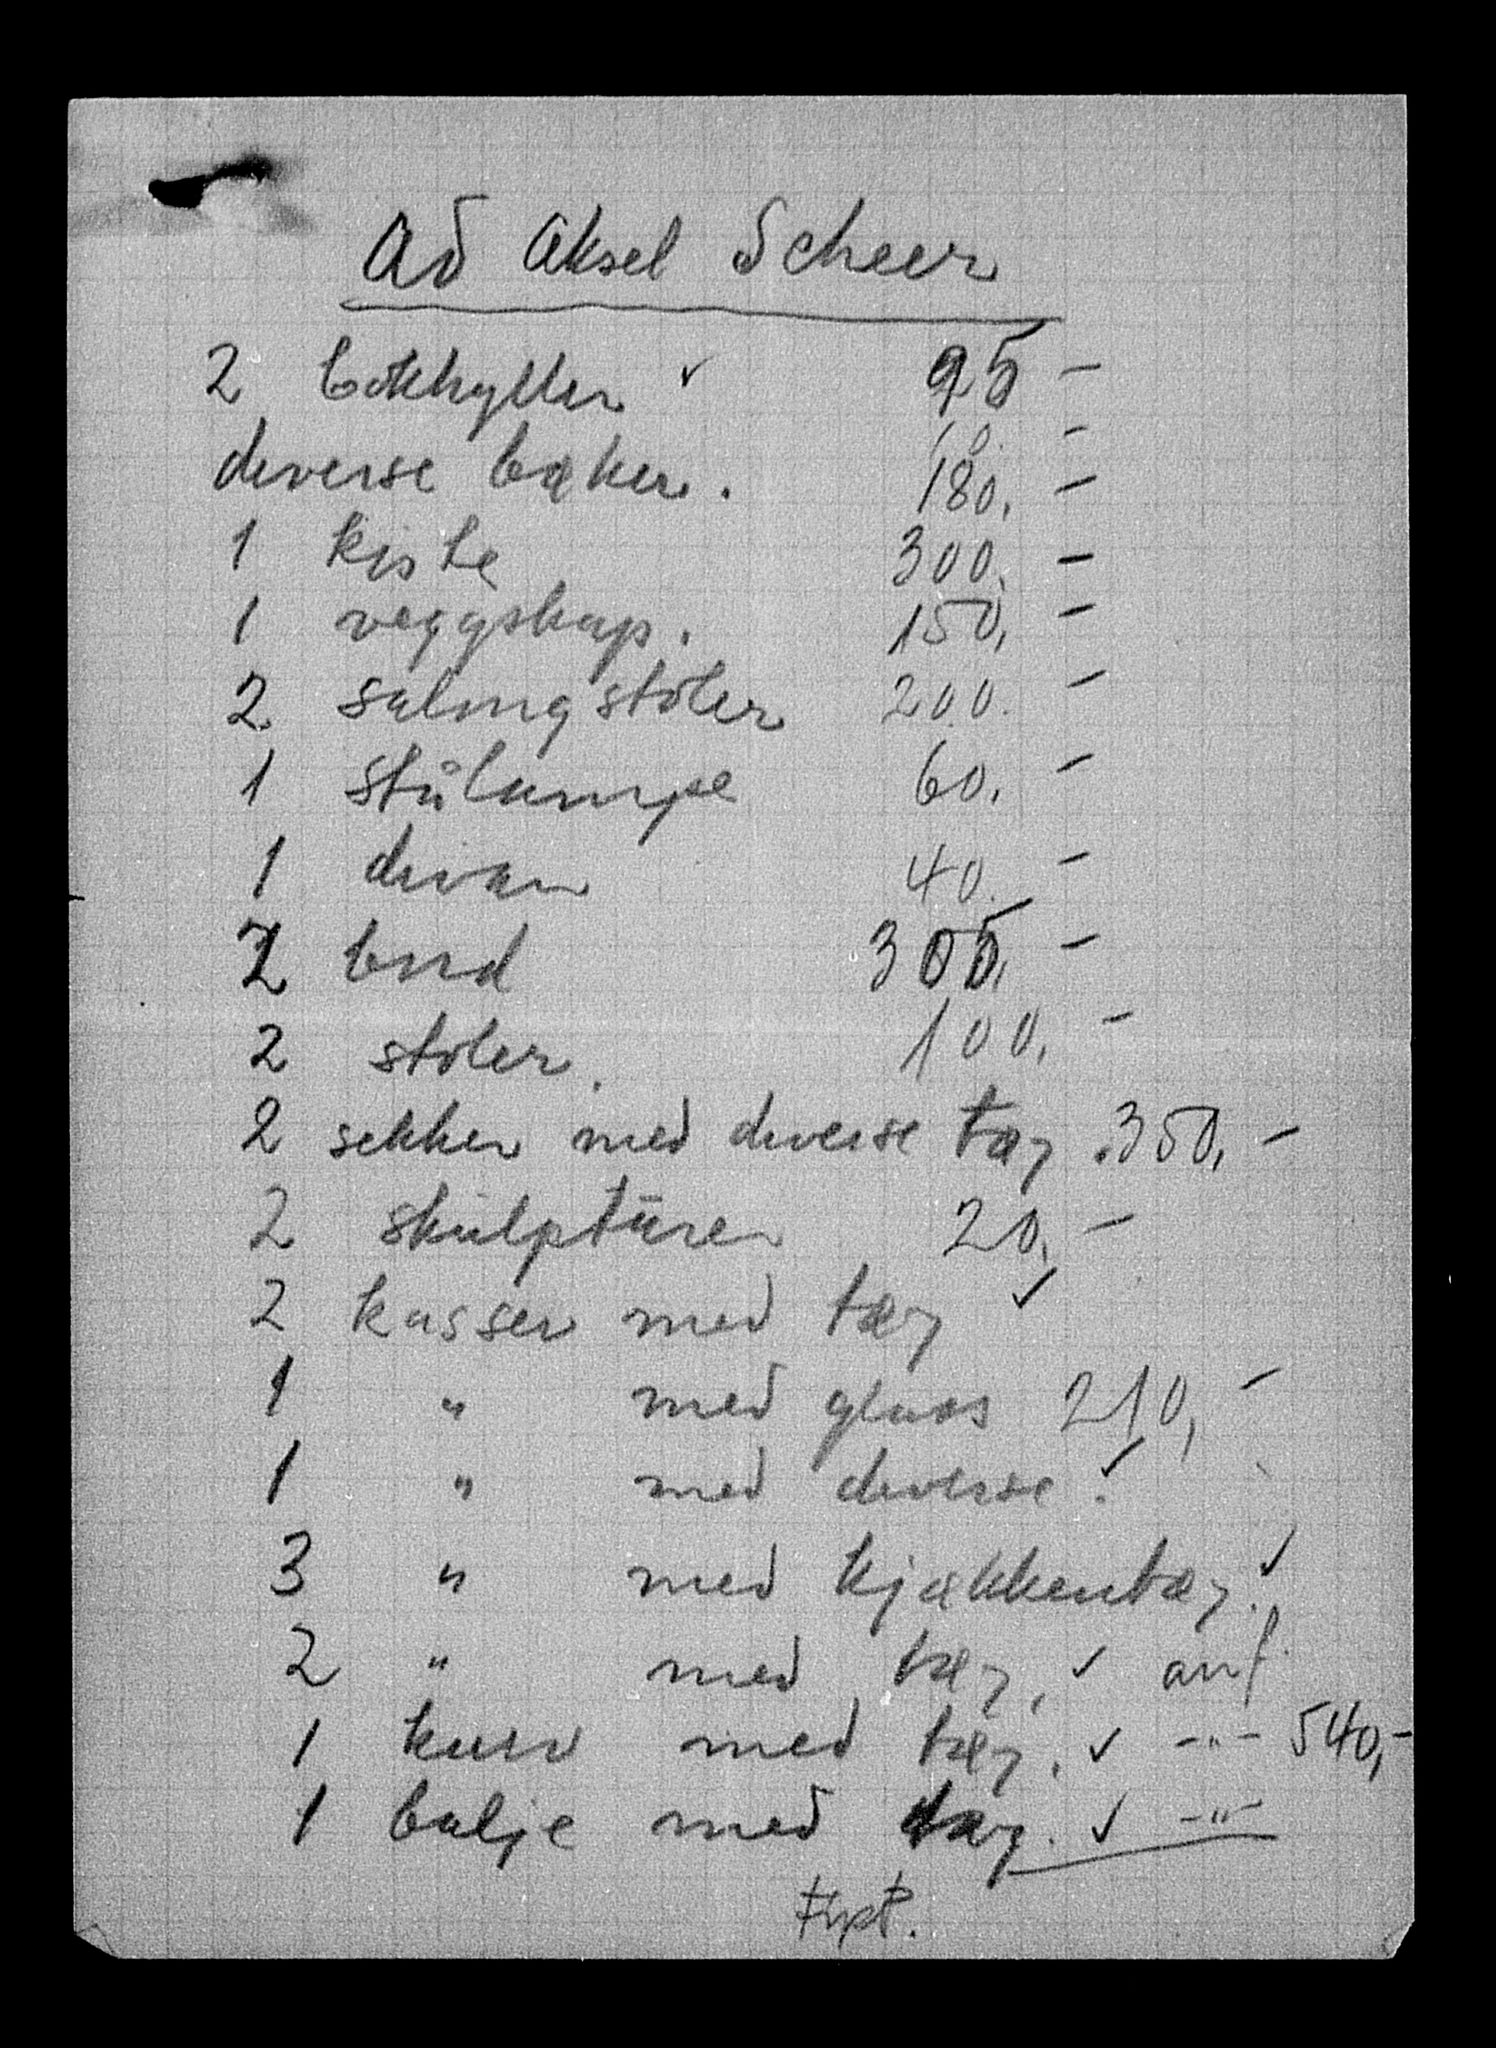 Ad Aksel Scheer
2 bokhyller ✓ 95 –
diverse bøker. 180, –
1 kiste 300, –
1 veggskap. 150, –
2 salongstoler 200. –
1 stålampe 60, –
1 divan 40. –
2 bord 305, –
2 stoler. 100, –
2 sekker med diverse tøy. 350, –
2 skulpturer 20, –
2 kasser med tøy ✓
1 " med glass 210, –
1 " med diverse. ✓
3 " med kjøkkentøy. ✓
2 " med tøy, ✓ anf.
1 kurv med tøy. ✓ -"- 540,-
1 balje med tøy. ✓ -"-